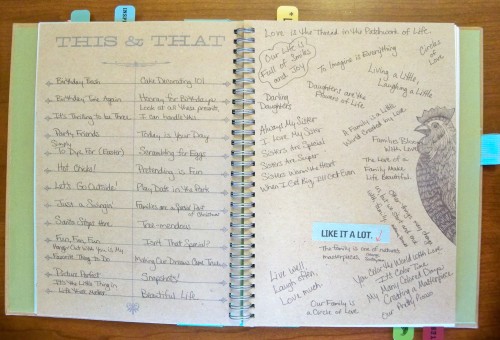 THIS & THAT
Birthday Bash
Cake Decorating 101
Birthday Time Again
Hooray for Birthdays
Look at all these presents
It's Thrilling to be Three
I can handle this
Party Friends
Today is Your Day
Simply
To Dye For (Easter)
Scrambling for Eggs
Hot Chicks!
Pretending is Fun
Let's Go Outside!
Play Date in the Park
Just a Swingin'
Families are a Special Part
of Christmas
Santa Stops Here
Tree-mendous
Fun, Fun, Fun
Isn't That Special?
Hangin' Out With You is My
Favorite Thing to Do
Making Our Dreams Come True
Picture Perfect
Snapshots!
It's the Little Things in
Life That Matter
Beautiful Life
Love is the Thread in the Patchwork of Life.
Our Life is
Full of Smiles
and Joy
To Imagine is Everything
Circles
of
Love
Living a Little,
Laughing a Little
Darling
Daughters
Daughters are the
Flowers of Life
Always My Sister
I Love My Sister
Sisters are Special
Sisters are Super
Sisters Warm the Heart
When I Get Big, I'll Get Even
A Family is a Little
World Created by Love
Families Bloom
With Love
The Love of a
Family Makes
Life Beautiful
Other things may change
us, but we start and end
with family
LIKE IT A LOT.
The family is one of nature's
masterpieces.
George
Santayana
Live well
Laugh often,
Love much
Our Family is
a Circle of Love
You Color My World With Love
Color Time
My Many Colored Days
Creating a Masterpiece
Our Pretty Picasso